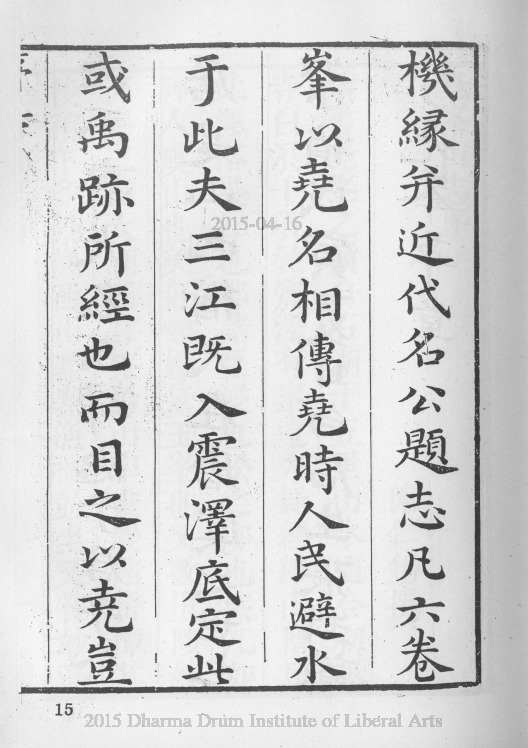 機縁并近代名公題志凡六卷
峯以堯名相傳堯時人民避水
于此夫三江既入震澤底定此
或禹跡所經也而目之以堯豈
2015-04-16
15
2015 Dharma Drum Institute of Liberal Arts